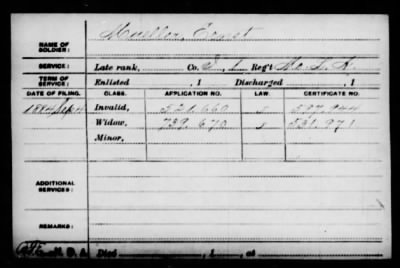 NAME OF SOLDIER: Mueller, Ernst
SERVICE: Late rank, Co. E, 1 Reg't Mo. L. A.
TERM OF SERVICE: Enlisted , 1 Discharged , 1
DATE OF FILING. CLASS. APPLICATION NO. LAW. CERTIFICATE NO.
1884 Sep 4 Invalid, 521.660 597.944
Widow, 729.670 531.971
Minor,
ADDITIONAL SERVICES:
REMARKS:
Died , 1 , at